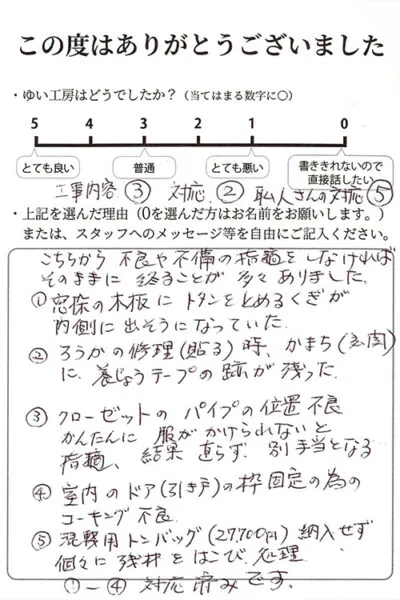 この度はありがとうございました
・ゆい工房はどうでしたか？（当てはまる数字に○）
5 4 3 2 1 0
とても良い 普通 とても悪い 書ききれないので直接話したい
工事内容 ③ 対応 ② 私人さんの対応 ⑤
・上記を選んだ理由（0を選んだ方はお名前をお願いします。）
または、スタッフへのメッセージ等を自由にご記入ください。
こちらから 不良や不備の指摘をしなければ
そのままに 終ることが 多々ありました。
① 窓際の木板に トタンをとめるくぎが
内側に出そうになっていた。
② ろうかの修理(貼る)時、かまち(玄関)
に、養じょうテープの跡が残った。
③ クローゼットの パイプの位置 不良
かんたんに 服がかけられないと
指摘、結果 直らず. 別手当となる
④ 室内のドア(引き戸)の枠固定の為の
コーキング 不良
⑤ 混載用トンバッグ(27,700円)納入せず
個々に 残材をはこび、処理
①－④ 対応済みです.